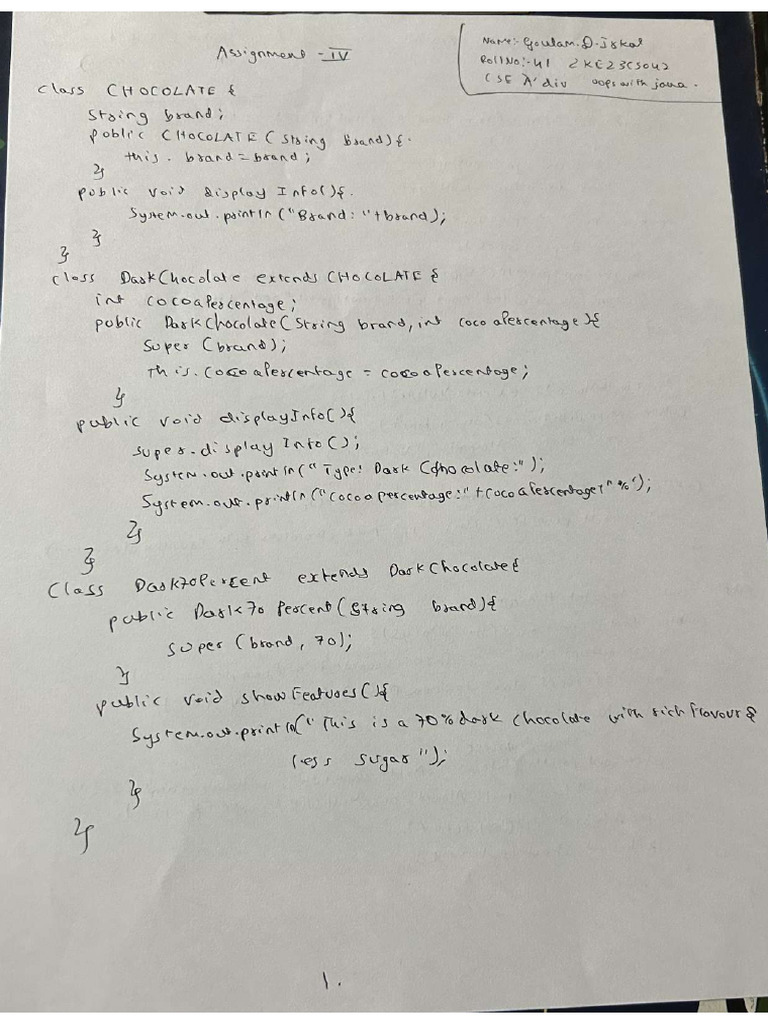 Assignment - IV
Name:- Goutam.D.Jskal
Roll No:- 41 2KE23CS042
CSE 'A' div oops with java.
class CHOCOLATE {
String brand;
public CHOCOLATE (String Brand){
this. brand = brand;
}
public void display Info(){
System.out.println ("Brand: "+brand);
}
}
class DarkChocolate extends CHOCOLATE {
int cocoaPercentage;
public DarkChocolate (String brand, int cocoaPercentage){
Super (brand);
This.cocoaPercentage = cocoaPercentage;
}
public void displayInfo(){
super.display Info();
System.out.println ("Type: Dark Chocolate:");
System.out.println ("cocoa percentage:" + cocoaPercentage+"%");
}
}
Class Dark70Percent extends DarkChocolate{
public Dark70 Percent (String brand){
super (brand, 70);
}
public void showFeatures(){
System.out.println("This is a 70% dark chocolate with rich flavour &
less sugar");
}
}
1.